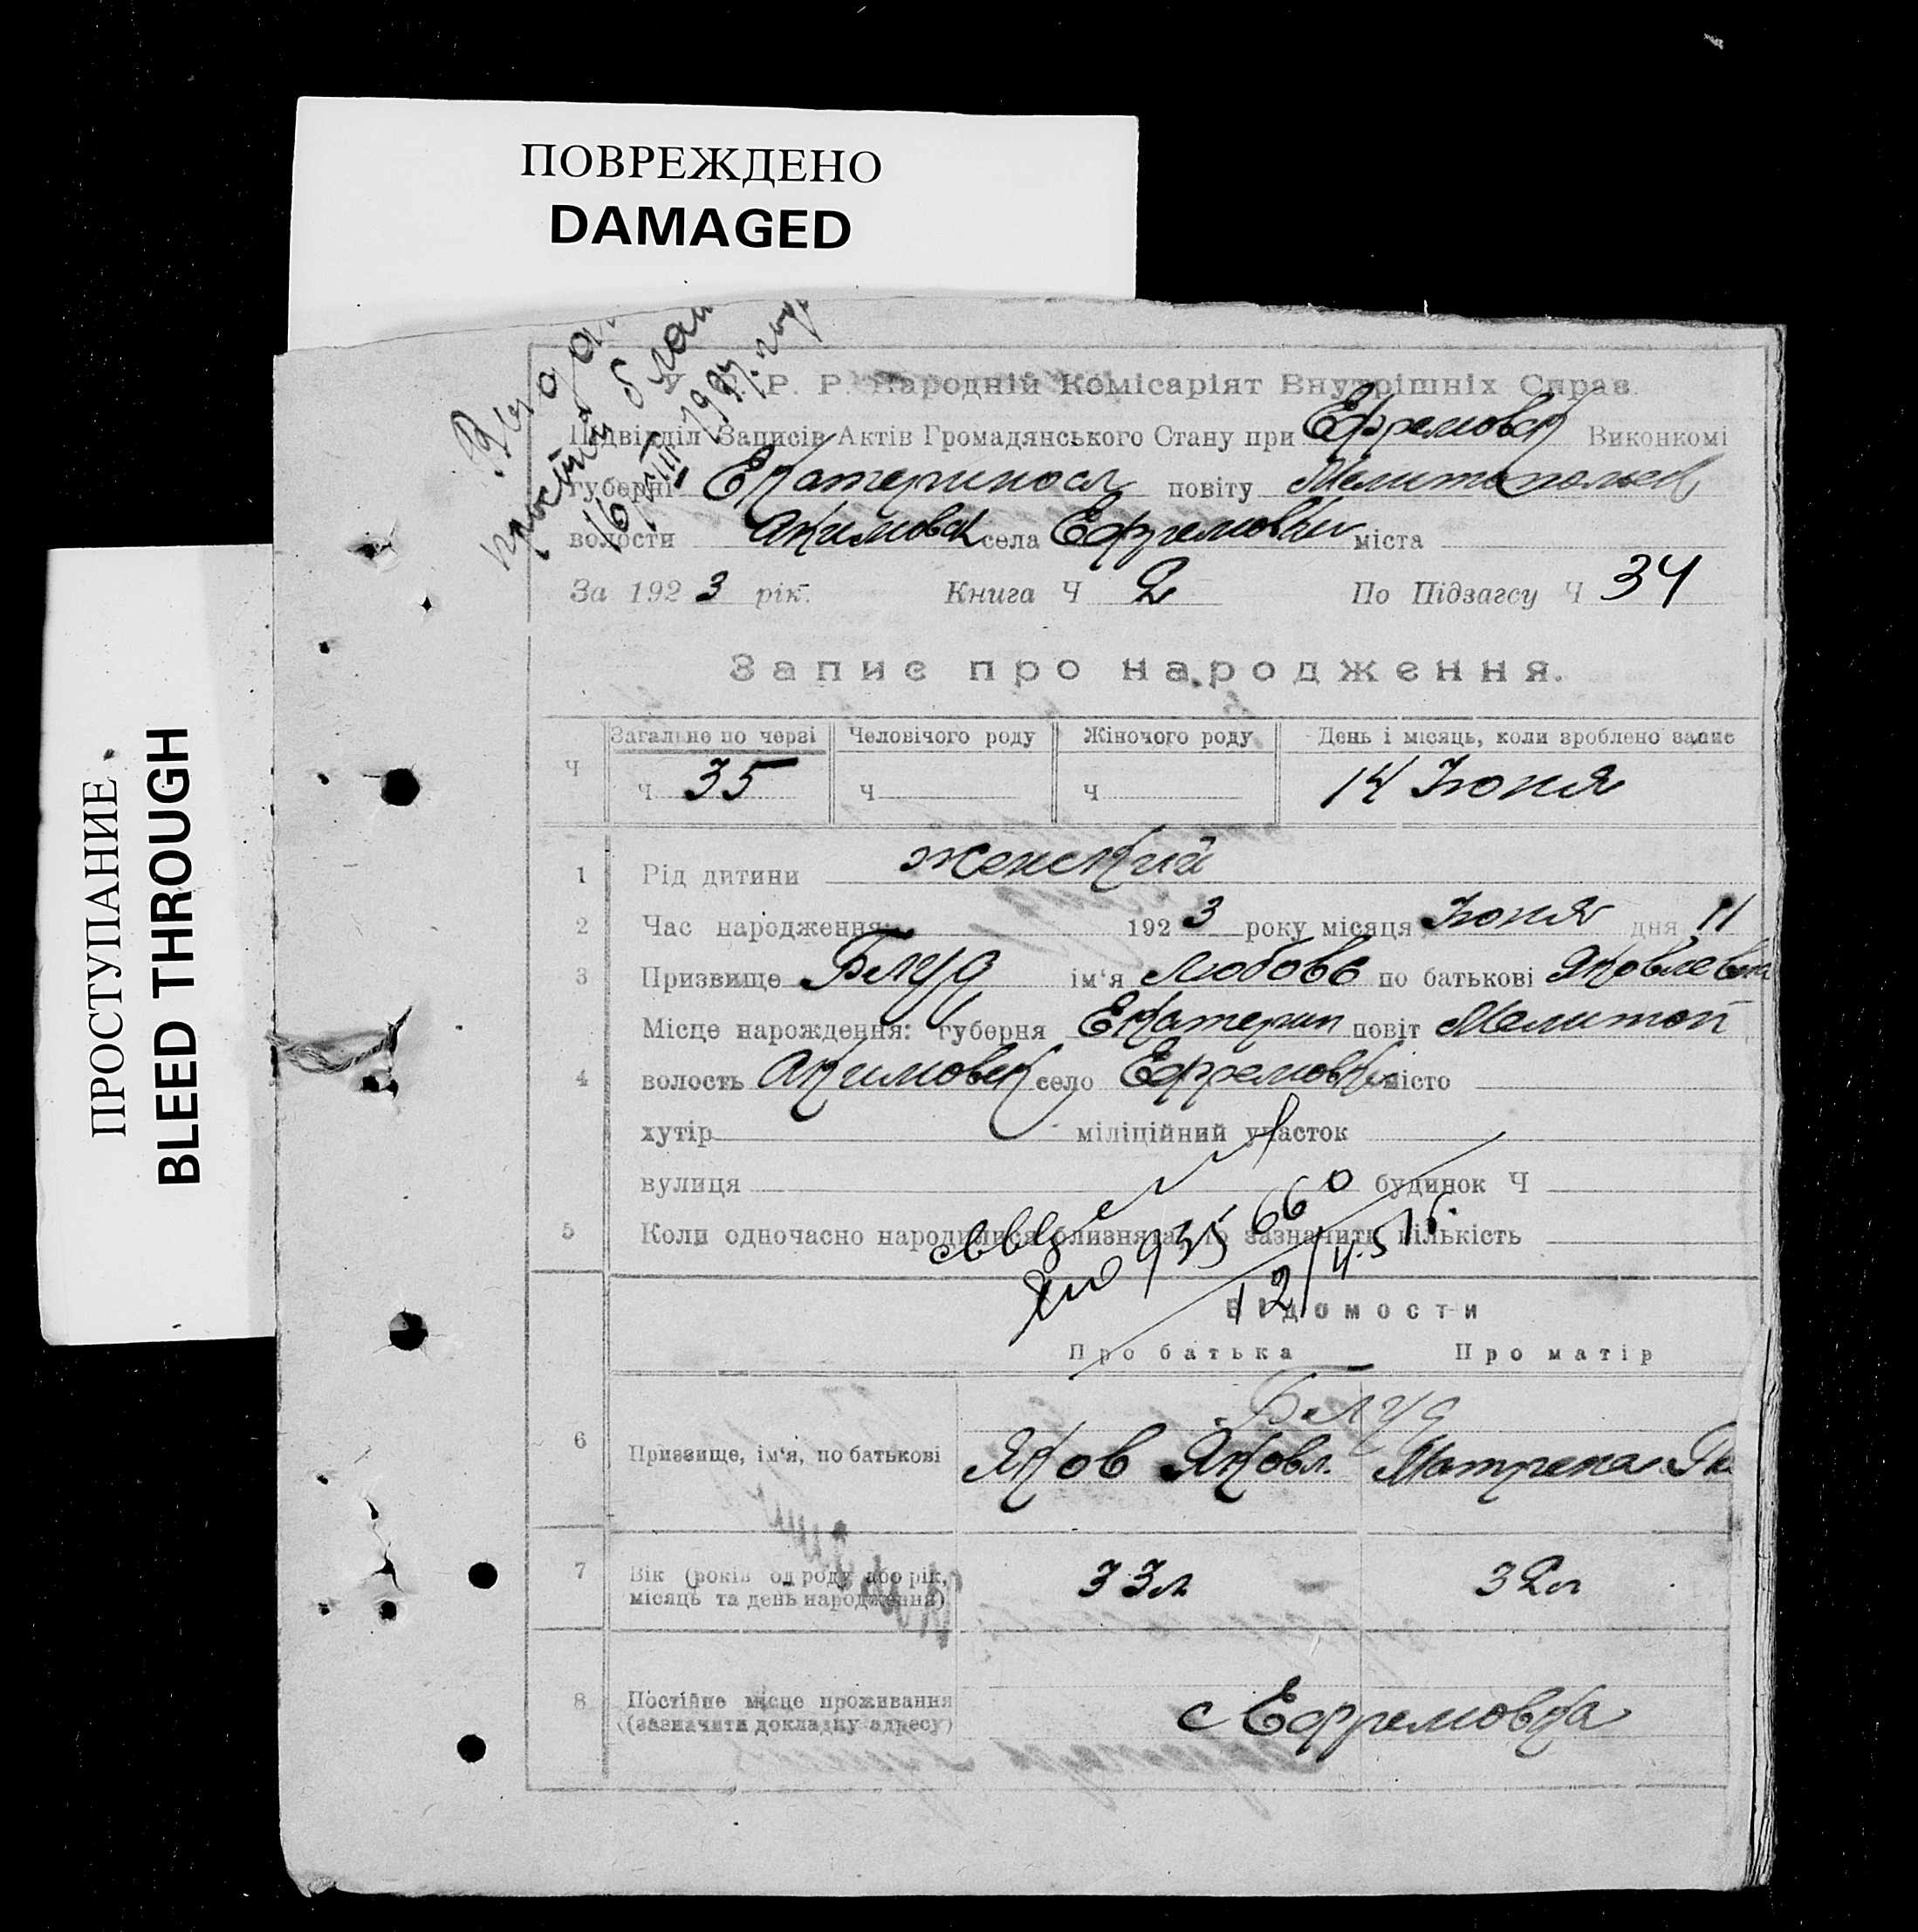 ПОВРЕЖДЕНО
DAMAGED
ПРОСТУПАНИЕ
BLEED THROUGH
простий блан
16/VIII 1937 году
У. С. Р. Р. Народній Комісаріят Внутрішніх Справ.
Підвідділ Записів Актів Громадянського Стану при Ефремовск Виконкомі
губерні Екатериносл повіту Мелитопольск
волости Акимовск села Ефремовки міста
За 1923 рік. Книга Ч 2 По Підзагсу Ч 34
Запис про народження.
Загальне по черзі Человічого роду Жіночого роду День і місяць, коли зроблено запис
Ч Ч 35 Ч Ч 14 Июня
1 Рід дитини женский
2 Час народження: 1923 року місяця Июня дня 11
3 Призвище Блуд ім‘я Любовь по батькові Яковлевна
Місце нарождення: губерня Екатерин повіт Мелитоп
4 волость Акимовск село Ефремовка місто
хутір міліційний участок
вулиця будинок Ч
5 Коли одночасно народилися близнята, то зазначить кількість
935660
12/4.51 г.
Відомости
Про батька Про матір
Блуд
6 Призвище, ім‘я, по батькові Яков Яковл. Матрена
7 Вік (років од роду або рік, місяць та день народження) 33 л 32 л
8 Постійне місце проживання (зазначити докладну адресу) с Ефремовка